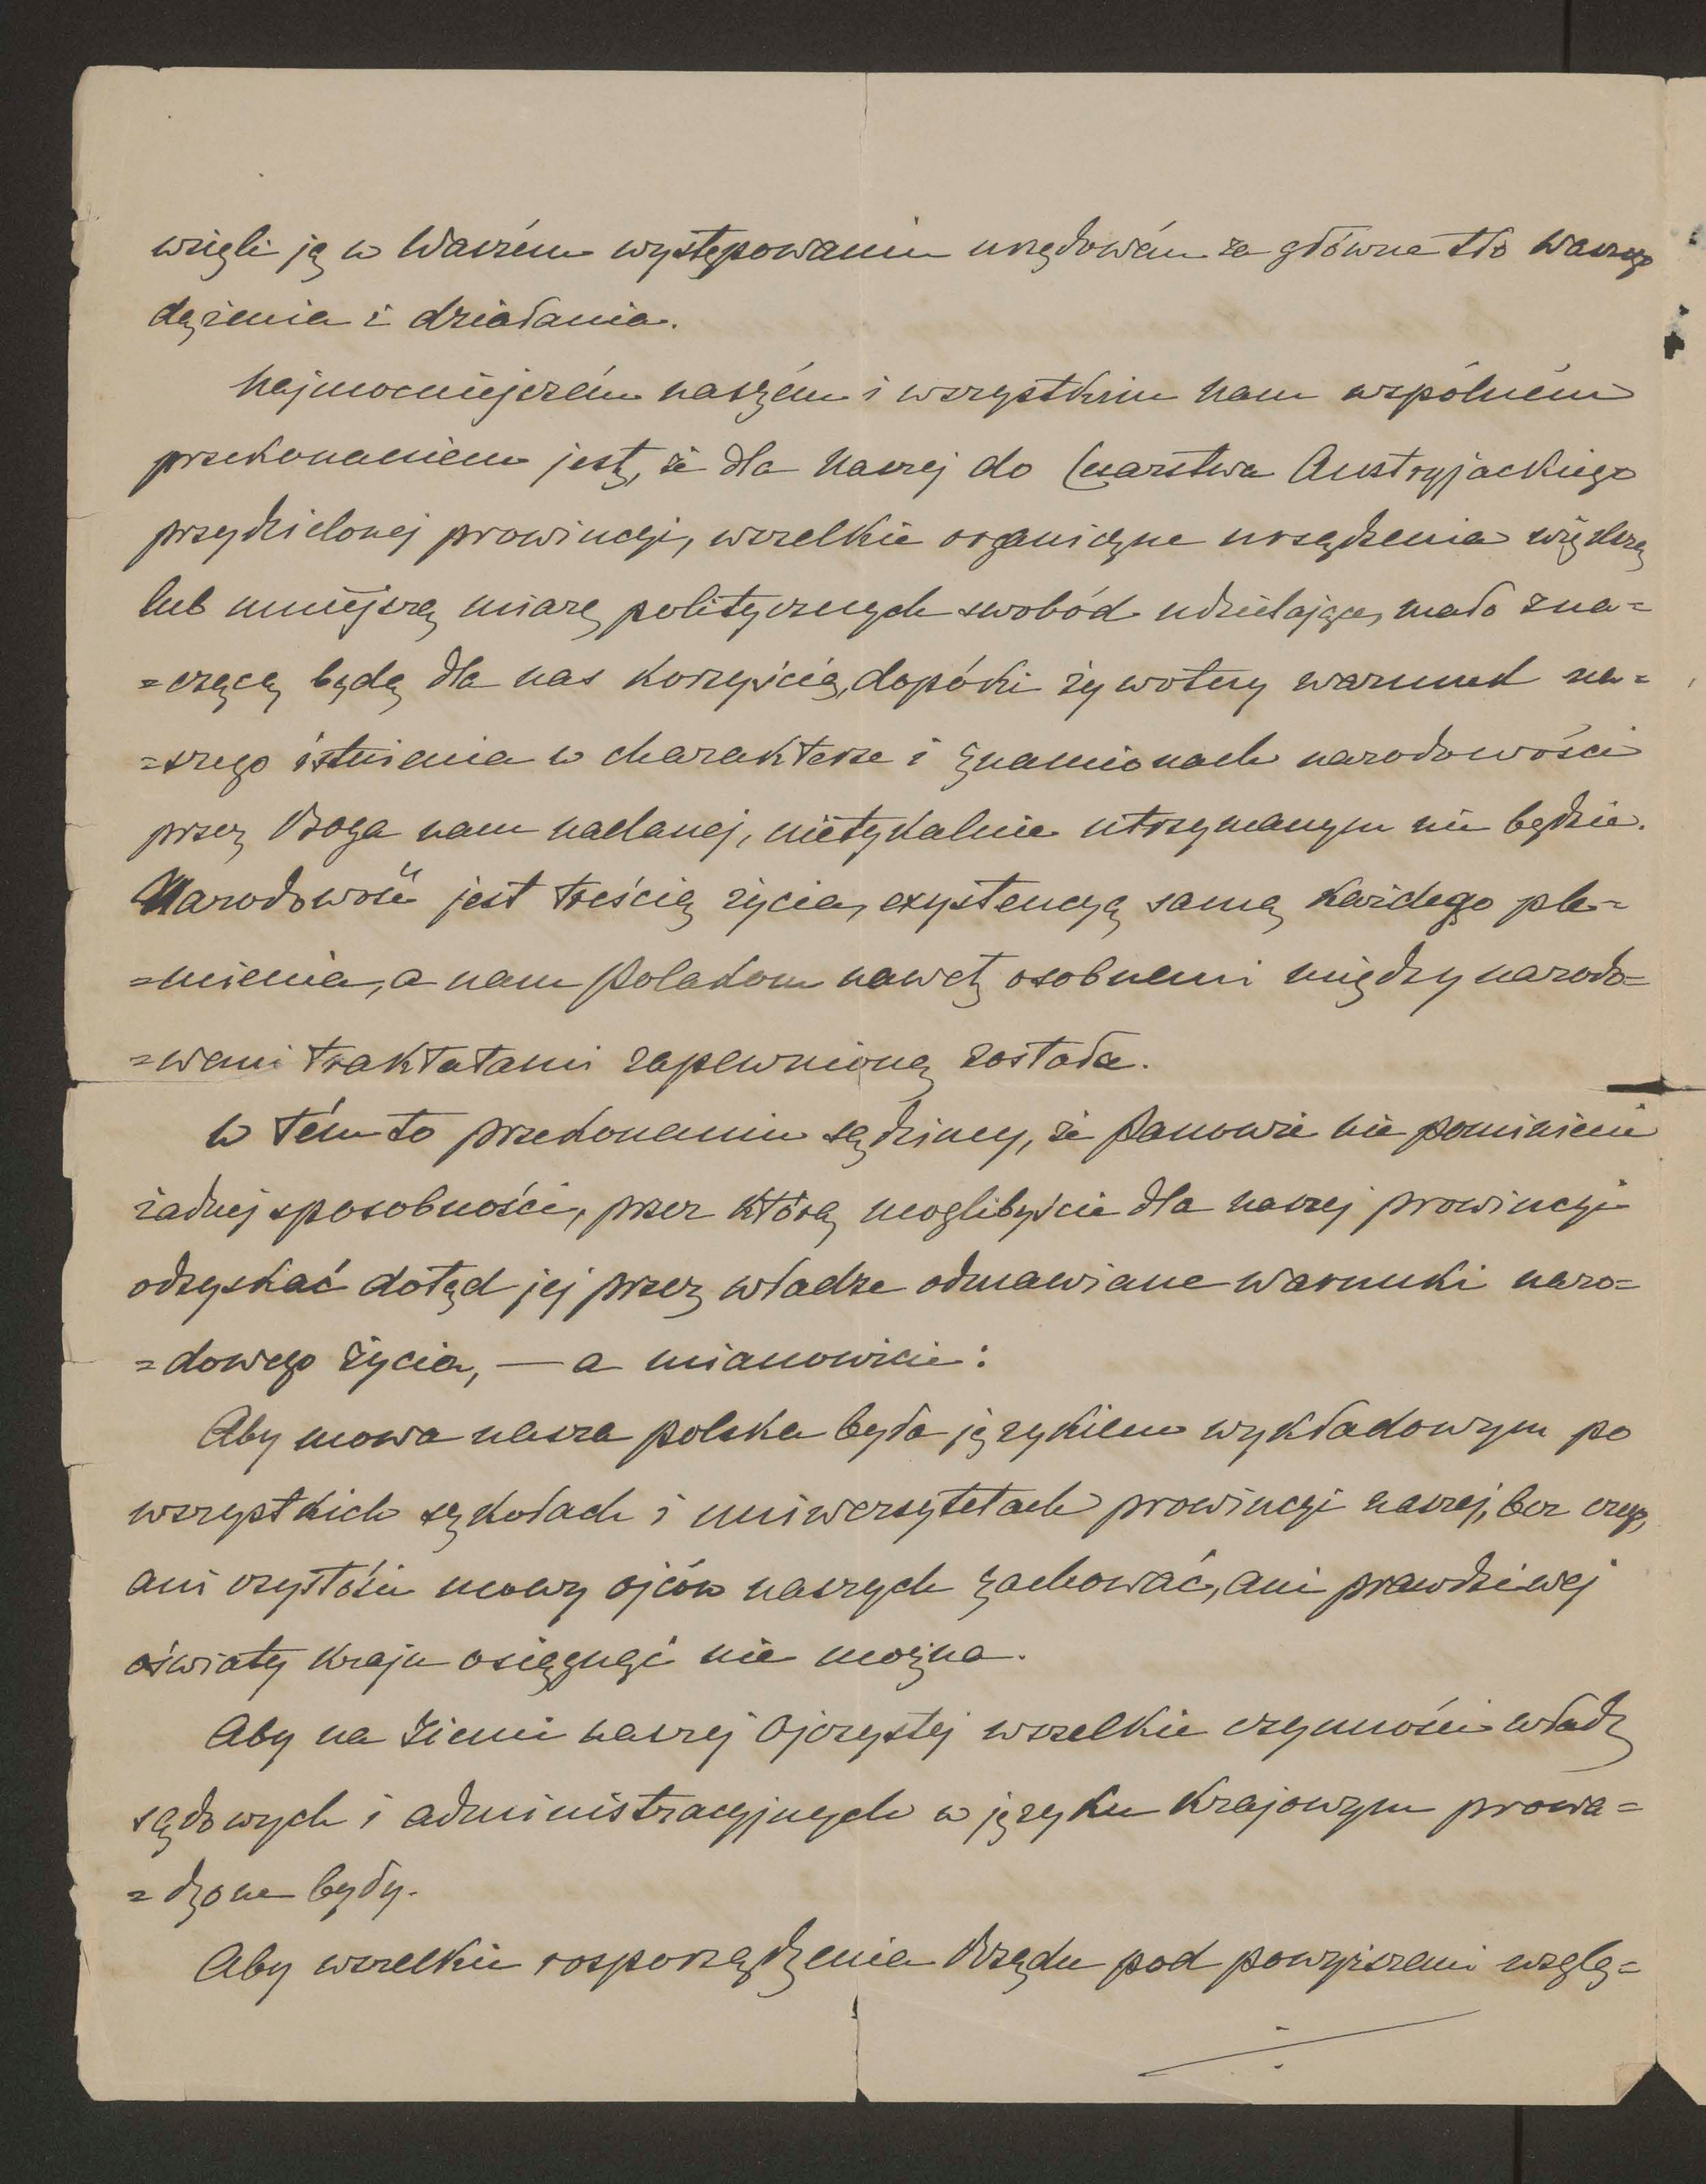 wzięli ją w Waszém występowaniu urzędowém za główne tło Waszego
dążenia i działania.
Najmocniejszém naszém i wszystkim nam wspólném
przekonaniem jest, że dla naszej do Cesarstwa Austryjackiego
przydzielonej prowincyi, wszelkie organiczne urządzenia większą
lub mniejszą miarę politycznych swobód udzielające, mało zna=
=czącą będą dla nas korzyścią, dopóki żywotny warunek na=
=szego istnienia w charakterze i znamionach narodowości
przez Boga nam nadanej, nietykalnie utrzymanym nie będzie.
Narodowość jest treścią życia, exystencyą samą każdego ple=
=mienia, a nam Polakom nawet osobnemi między narodo=
=wemi traktatami zapewnioną została.
W tém to przekonaniu sądzimy, że Panowie nie pominiecie
żadnej sposobności, przez którą moglibyście dla naszej prowincyi
odzyskać dotąd jej przez władze odmawiane warunki naro=
=dowego życia, — a mianowicie:
Aby mowa nasza polska była językiem wykładowym po
wszystkich szkołach i uniwersytetach prowincyi naszej, bez czego,
ani czystości mowy ojców naszych zachować, ani prawdziwej
oświaty kraju osiągnąć nie można.
Aby na ziemi naszej Ojczystej wszelkie czynności władz
sądowych i administracyjnych w języku krajowym prowa=
=dzone były.
Aby wszelkie rosporządzenia Rządu pod powyższemi wzglę=